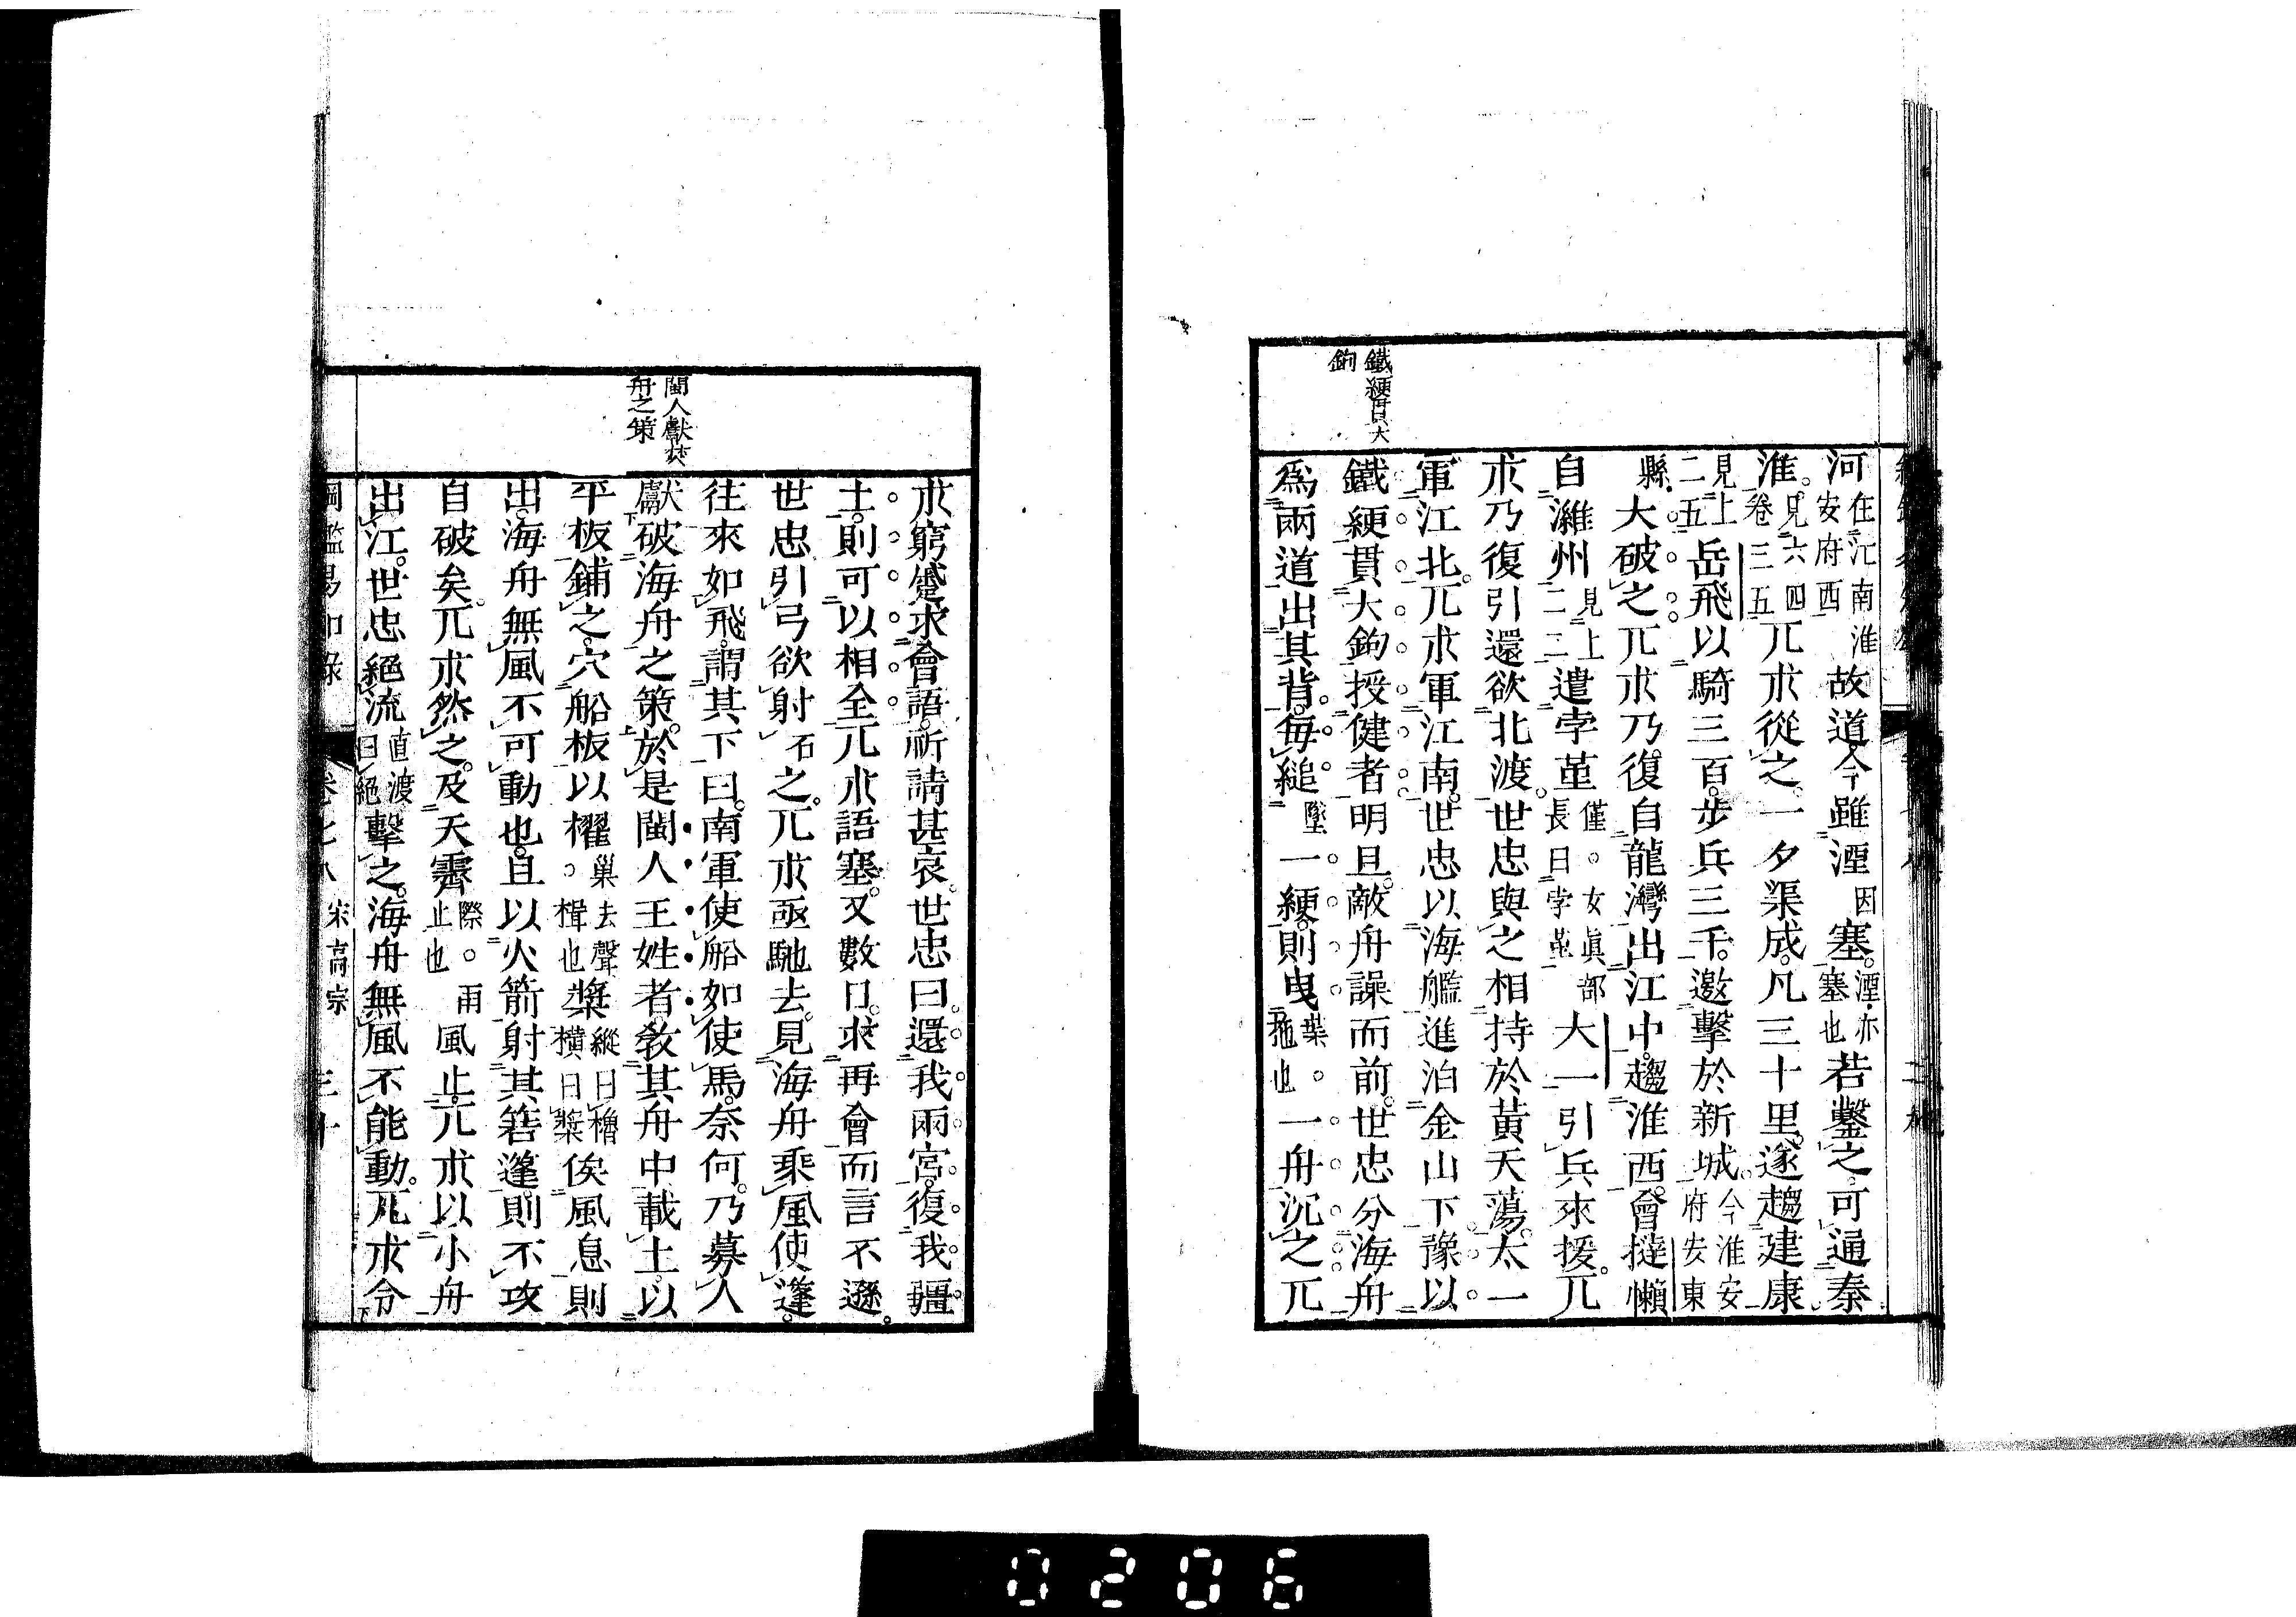 鐵綆貫大
鉤
河住江南淮安府西故道今雖湮因塞湮亦塞也若鑿之可通秦
淮見六四卷三五兀朮從之一夕渠成凡三十里遂趨建康
見上二五岳飛以騎三百步兵三千邀擊於新城今淮安府安東
縣大破之兀朮乃復自龍灣出江中趨淮西會撻懶
自濰州見上二二遣孛堇僅女眞部長曰孛堇大一引兵來援兀
朮乃復引還欲北渡世忠與之相持於黃天蕩太一
軍江北兀朮軍江南世忠以海艦進泊金山下豫以
鐵綆貫大鉤授健者明旦敵舟譟而前世忠分海舟
爲兩道出其背每縋墜一綆則曳葉拖也一舟沉之兀
閩人獻破
舟之策
朮窮蹙求會語祈請甚哀世忠曰還我兩宮復我疆
土則可以相全兀朮語塞又數日求再會而言不遜
世忠引弓欲射石之兀朮亟馳去見海舟乘風使篷
往來如飛謂其下曰南軍使船如使馬奈何乃募人
獻破海舟之策於是閩人王姓者敎其舟中載土以
平板鋪之穴船板以櫂巢去聲楫也槳縱曰櫓橫曰槳俟風息則
出海舟無風不可動也且以火箭射其篛篷則不攻
自破矣兀朮然之及天霽際雨止也風止兀朮以小舟
出江世忠絕流直渡曰絕擊之海舟無風不能動兀朮令
綱鑑易知錄 卷七八 宋高宗 三十
0206